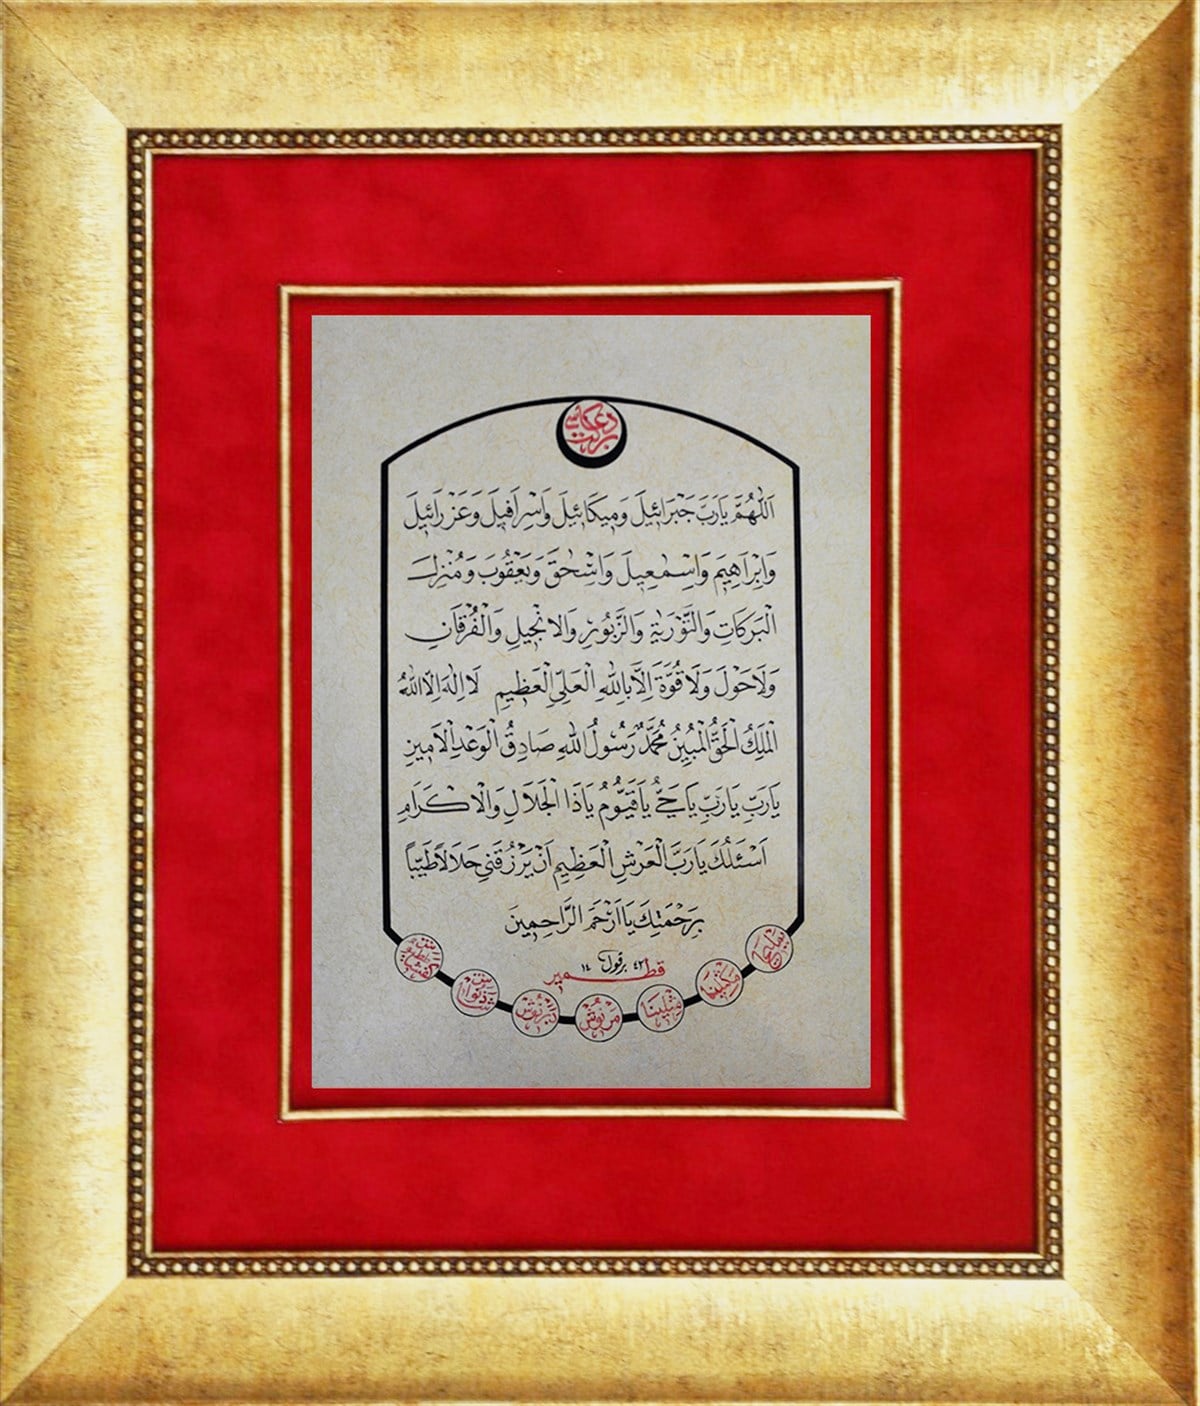 بركت دعاسى
اَللّٰهُمَّ يَارَبَّ جَبْرَائِيلَ وَمِيكَائِيلَ وَاِسْرَافِيلَ وَعَزْرَائِيلَ
وَاِبْرَاهِيمَ وَاِسْمٰعِيلَ وَاِسْحٰقَ وَيَعْقُوبَ وَمُنْزِلَ
الْبَرَكَاتِ وَالتَّوْرٰيةِ وَالزَّبُورِ وَالْاِنْجِيلِ وَالْفُرْقَانِ
وَلَا حَوْلَ وَلَا قُوَّةَ اِلَّا بِاللّٰهِ الْعَلِيِّ الْعَظِيمِ لَا اِلٰهَ اِلَّا اللّٰهُ
الْمَلِكُ الْحَقُّ الْمُبِينُ مُحَمَّدٌ رَسُولُ اللّٰهِ صَادِقُ الْوَعْدِ الْاَمِينِ
يَارَبِّ يَارَبِّ يَاحَيُّ يَاقَيُّومُ يَاذَا الْجَلَالِ وَالْاِكْرَامِ
اَسْئَلُكَ يَارَبَّ الْعَرْشِ الْعَظِيمِ اَنْ يَرْزُقَنِي حَلَالًا طَيِّبًا
بِرَحْمَتِكَ يَا اَرْحَمَ الرَّاحِمِينَ
برقول ١٤٤٢
قطمير
يمليخا
مكثلينا
مثلينا
مرنوش
دبرنوش
شاذنوش
كفشططيوش